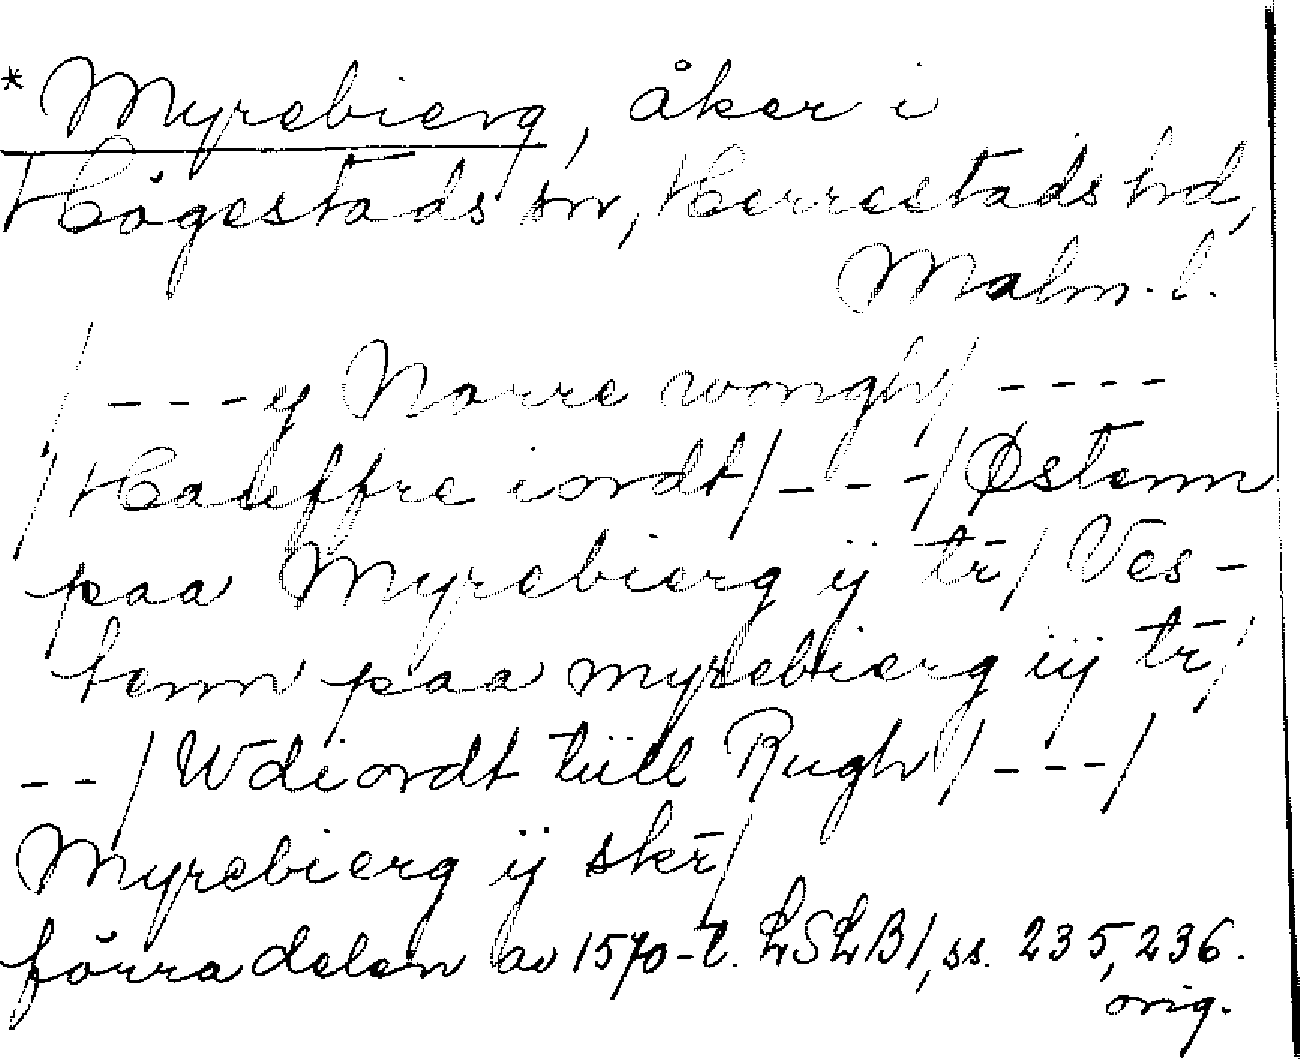 * Myrebierg, åker i
Högestads sn, Herrestads hd,
Malm. l.
/ - - - y Norre wongh/ - - - -
/ Hauffre iordt/ - - - / Østenn
paa Myrebierg ij tr̄ / Ves-
tenn paa myrebierg iij tr̄/
- - / Wdiordt tiill Rugh/ - - - /
Myrebierg ij skr̄/
förra delen av 1570-t. LSLB1, ss. 235, 236.
orig.